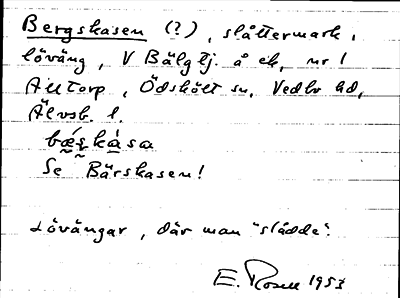 Bergskasen (?), slåttermark,
löväng, V Bälgtj. å ek, nr 1
Alltorp, Ödskölt sn, Vedbo hd,
Älvsb. l.
bæ̀s̱kása
Se Bärskasen!
Lövängar, där man "slådde".
E. Rosell 1953